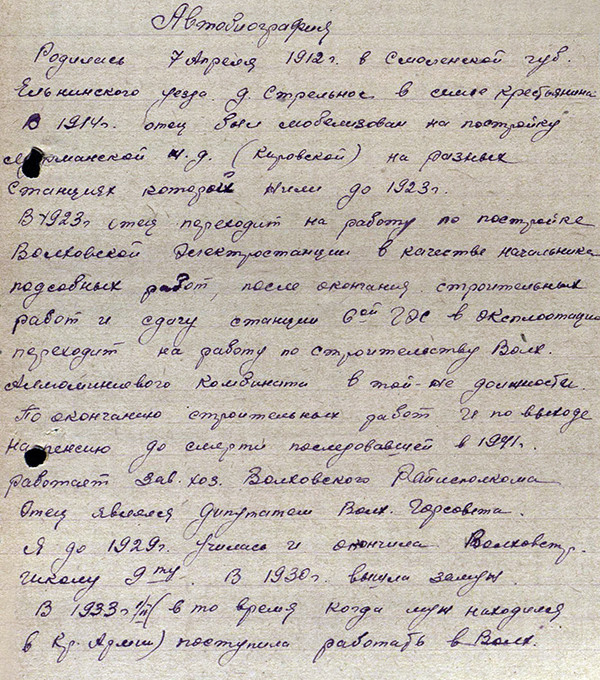 Автобиография
Родилась 7 Апреля 1912 г. в Смоленской губ.
Ельнинского уезда д. Стрельнос в семье крестьянина
В 1914 г. отец был мобелизован на постройку
Мурманской ж.д. (Кировской) на разных
станциях которой жили до 1923 г.
В 1923 г отец переходит на работу по постройке
Волховской Электростанции в качестве начальника
подсобных работ, после окончания строительных
работ и сдачу станции 6ой ГЭС в эксплоотацию
переходит на работу по строительству Волх.
Аллюминиевого Комбината в той-же должности.
По окончанию строительных работ и по выходе
на пенсию до смерти последовавшей в 1941 г.
работает зав. хоз. Волховского Райисполкома
Отец являлся депутатом Волх. Горсовета.
Я до 1929 г. училась и окончила Волховстр.
школу 9ту. В 1930 г. вышла замуж.
В 1933 г. (в то время когда муж находился
в Кр. Армии) поступила работать в Волх.